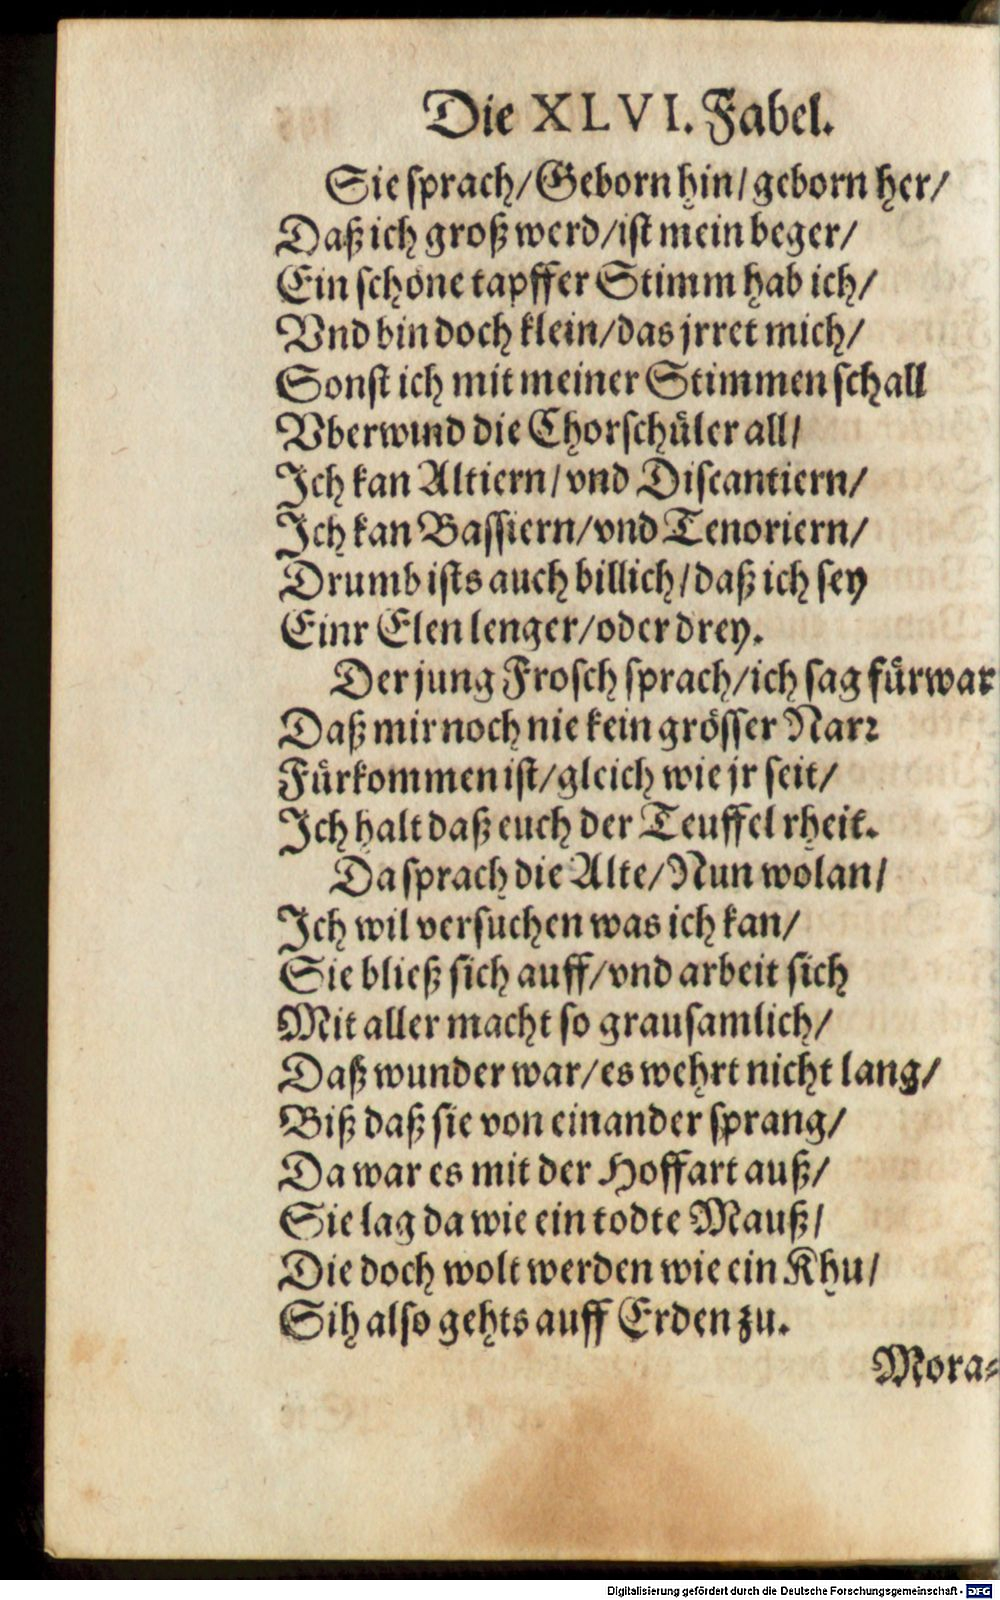 Die XLVI. Fabel.
Sie sprach/Geborn hin/geborn her/
Daß ich groß werd/ist mein beger/
Ein schöne tapffer Stimm hab ich/
Vnd bin doch klein/das jrret mich/
Sonst ich mit meiner Stimmen schall
Vberwind die Chorschüler all/
Ich kan Altiern/vnd Discantiern/
Ich kan Bassiern/vnd Tenoriern/
Drumb ists auch billich/daß ich sey
Einr Elen lenger/oder drey.
Der jung Frosch sprach/ich sag fürwar
Daß mir noch nie kein grösser Narr
Fürkommen ist/gleich wie jr seit/
Ich halt daß euch der Teuffel rheit.
Da sprach die Alte/Nun wolan/
Ich wil versuchen was ich kan/
Sie bließ sich auff/vnd arbeit sich
Mit aller macht so grausamlich/
Daß wunder war/es wehrt nicht lang/
Biß daß sie von einander sprang/
Da war es mit der Hoffart auß/
Sie lag da wie ein todte Mauß/
Die doch wolt werden wie ein Khu/
Sih also gehts auff Erden zu.
Mora-
Digitalisierung gefördert durch die Deutsche Forschungsgemeinschaft - DFG